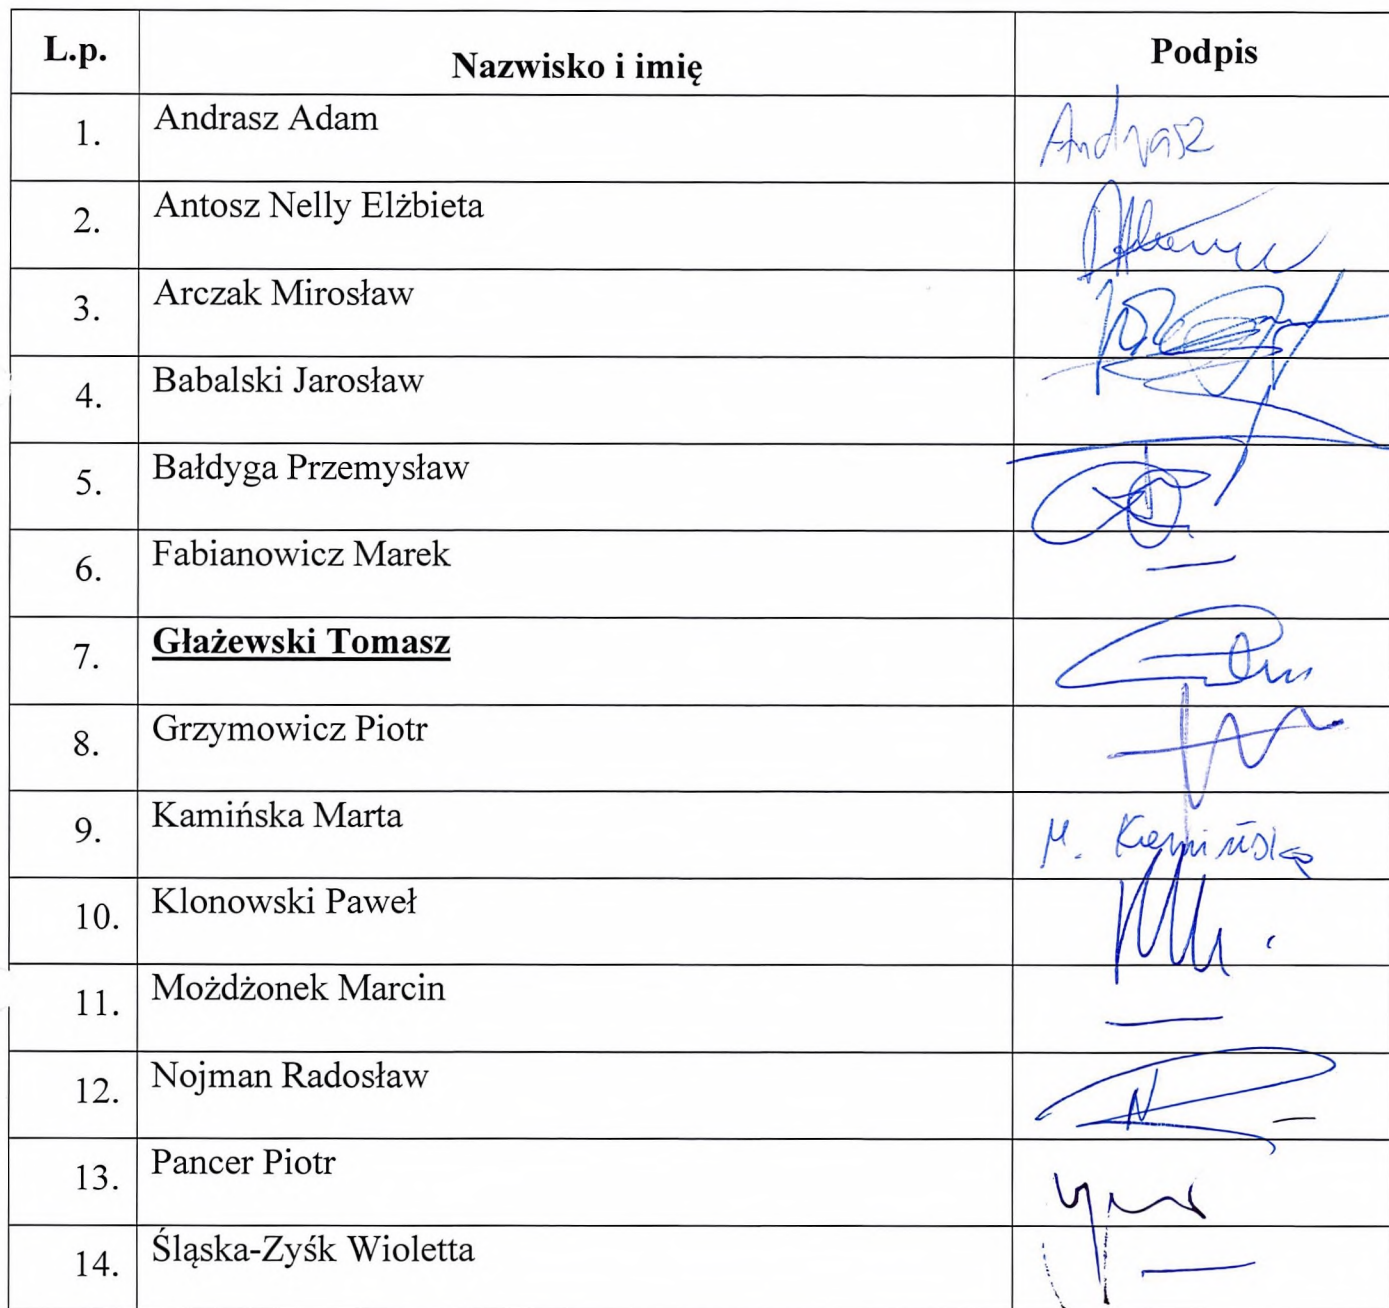 L.p. Nazwisko i imię Podpis
1. Andrasz Adam Andrasz
2. Antosz Nelly Elżbieta
3. Arczak Mirosław
4. Babalski Jarosław
5. Bałdyga Przemysław
6. Fabianowicz Marek —
7. Głażewski Tomasz
8. Grzymowicz Piotr
9. Kamińska Marta M. Kamińska
10. Klonowski Paweł
11. Możdżonek Marcin —
12. Nojman Radosław
13. Pancer Piotr
14. Śląska-Zyśk Wioletta —